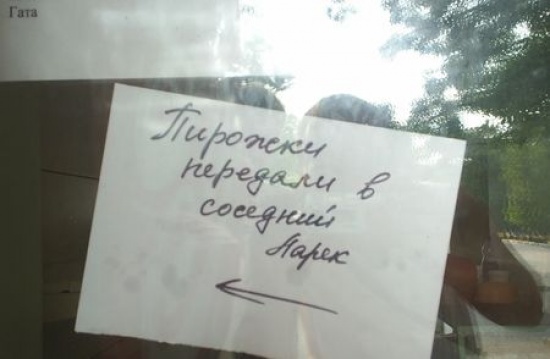 Гата
Пирожки
передали в
соседний
Ларек